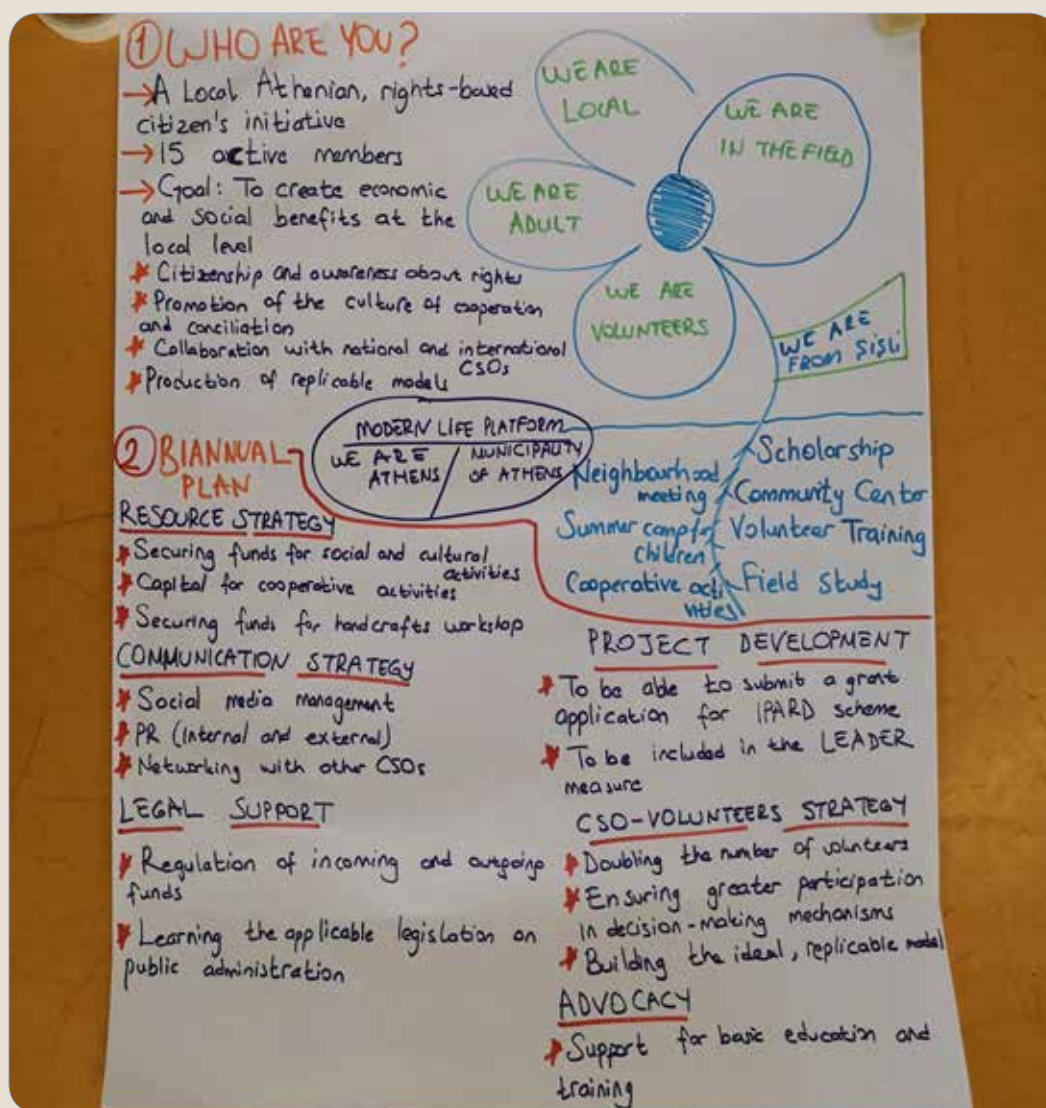 ① WHO ARE YOU?
→ A Local Athenian, rights-based
citizen's initiative
→ 15 active members
→ Goal: To create economic
and social benefits at the
local level
* Citizenship and awareness about rights
* Promotion of the culture of cooperation
and conciliation
* Collaboration with national and international
CSOs
* Production of replicable models
WE ARE
LOCAL
WE ARE
IN THE FIELD
WE ARE
ADULT
WE ARE
VOLUNTEERS
WE ARE
FROM ŞİŞLİ
MODERN LIFE PLATFORM
WE ARE
ATHENS
MUNICIPALITY
OF ATHENS
Neighbourhood
meeting
Summer camp for
children
Cooperative acti
vities
Scholarship
Community Center
Volunteer Training
Field Study
② BIANNUAL
PLAN
RESOURCE STRATEGY
* Securing funds for social and cultural
activities
* Capital for cooperative activities
* Securing funds for handcrafts workshop
COMMUNICATION STRATEGY
* Social media management
* PR (Internal and external)
* Networking with other CSOs
LEGAL SUPPORT
* Regulation of incoming and outgoing
funds
* Learning the applicable legislation on
public administration
PROJECT DEVELOPMENT
* To be able to submit a grant
application for IPARD scheme
* To be included in the LEADER
measure
CSO-VOLUNTEERS STRATEGY
* Doubling the number of volunteers
* Ensuring greater participation
in decision-making mechanisms
* Building the ideal, replicable model
ADVOCACY
* Support for basic education and
training